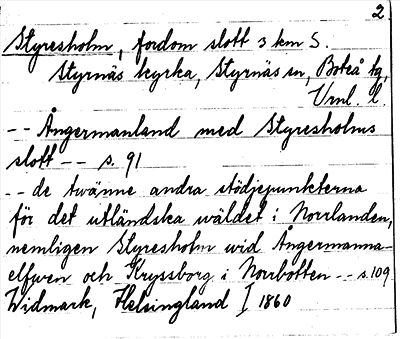 2.
Styresholm, fordom slott 3 km S.
Styrnäs kyrka, Styrnäs sn, Boteå tg,
Vrnl. l.
-- Ångermanland med Styresholms
slott -- s. 91
-- de twänne andra stödjepunkterna
för det utländska wäldet i Norrlanden,
nemligen Styresholm wid Ångermanna-
elfwen och Kryssborg i Norrbotten -- s. 109
Widmark, Helsingland I 1860